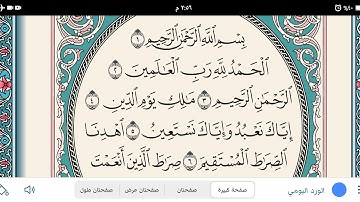 ٢:٥٦ م
بِسْمِ ٱللَّهِ ٱلرَّحْمَٰنِ ٱلرَّحِيمِ ١
ٱلْحَمْدُ لِلَّهِ رَبِّ ٱلْعَٰلَمِينَ ٢
ٱلرَّحْمَٰنِ ٱلرَّحِيمِ ٣ مَٰلِكِ يَوْمِ ٱلدِّينِ ٤
إِيَّاكَ نَعْبُدُ وَإِيَّاكَ نَسْتَعِينُ ٥ ٱهْدِنَا
ٱلصِّرَٰطَ ٱلْمُسْتَقِيمَ ٦ صِرَٰطَ ٱلَّذِينَ أَنْعَمْتَ
الورد اليومي صفحة كبيرة صفحتان صفحتان عرض صفحتان طول